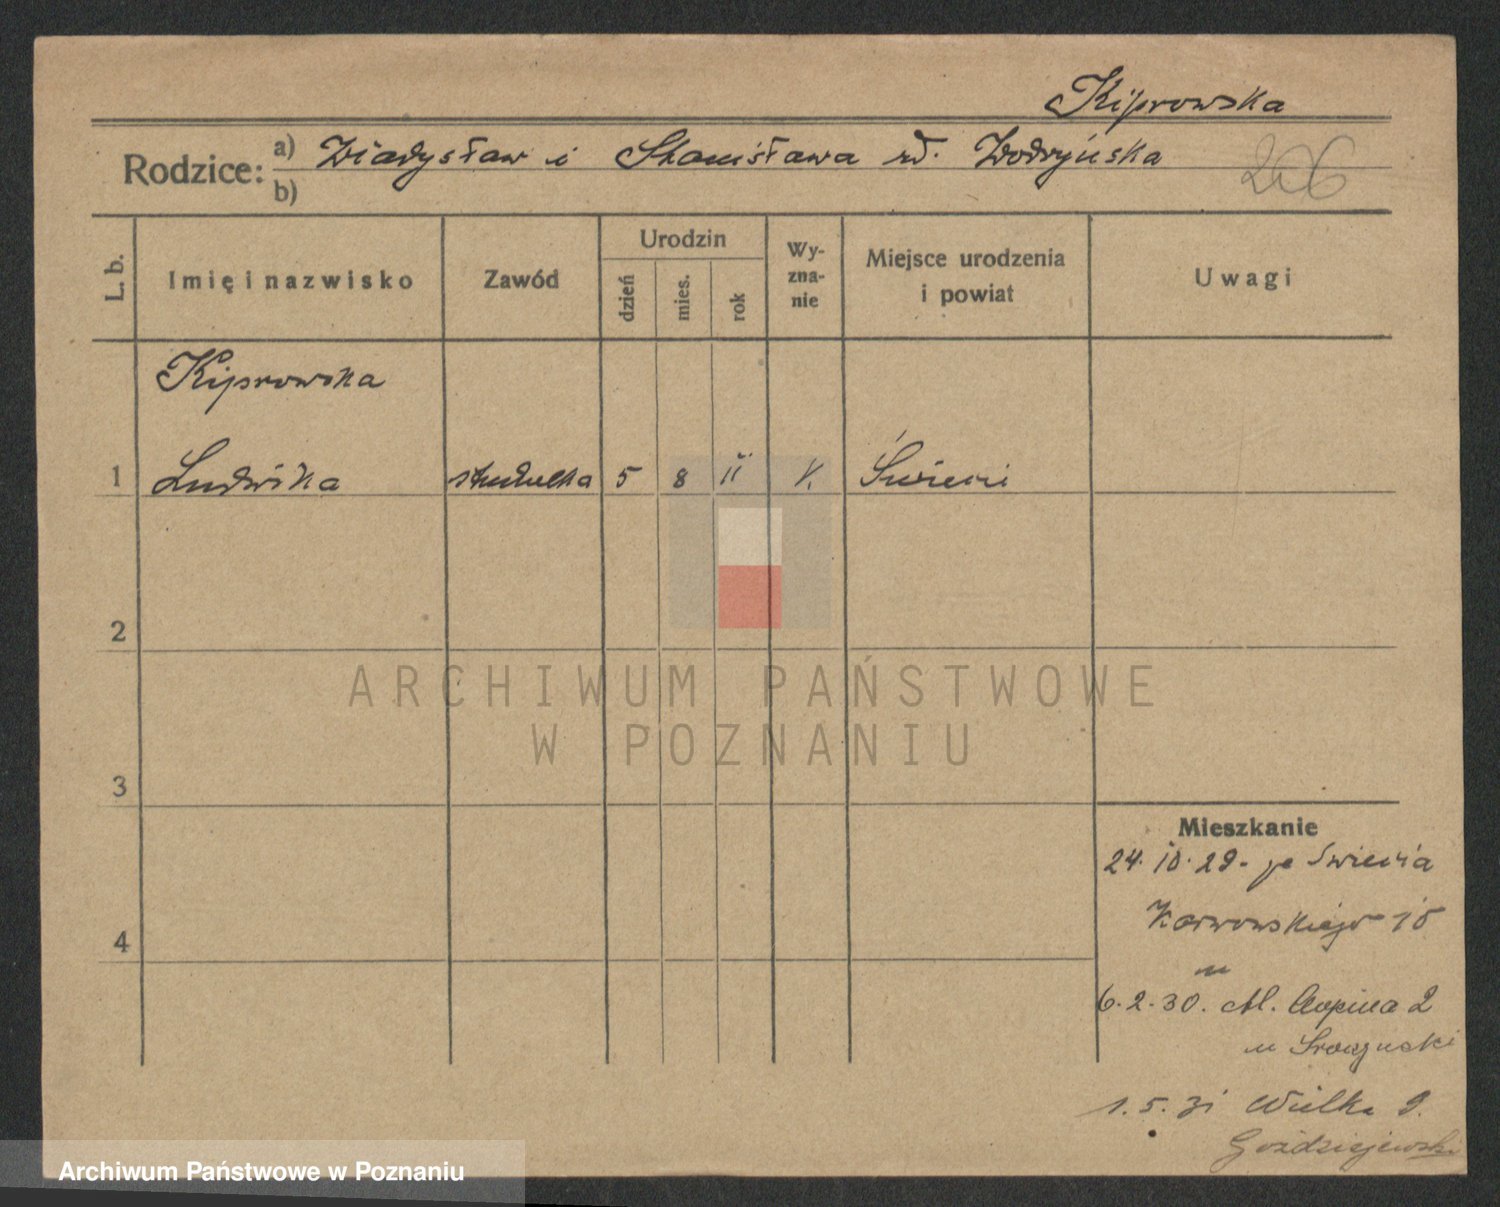 Kiprowska
Rodzice: a) Władysław i Stanisława rd.
b)
206
L. b. Imię i nazwisko Zawód Urodzin dzień mies. rok Wy-zna-nie Miejsce urodzenia i powiat Uwagi
Kiprowska
1 Ludwika studentka 5 8 11 k. Świecie
2
ARCHIWUM PAŃSTWOWE
W POZNANIU
3
Mieszkanie
24. 10. 29. ze Świecia
4 Karwowskiego 15
u
6. 2. 30. Al. Chopina 2
u
1. 5. 31 Wielka 9.
Goździejewski
Archiwum Państwowe w Poznaniu